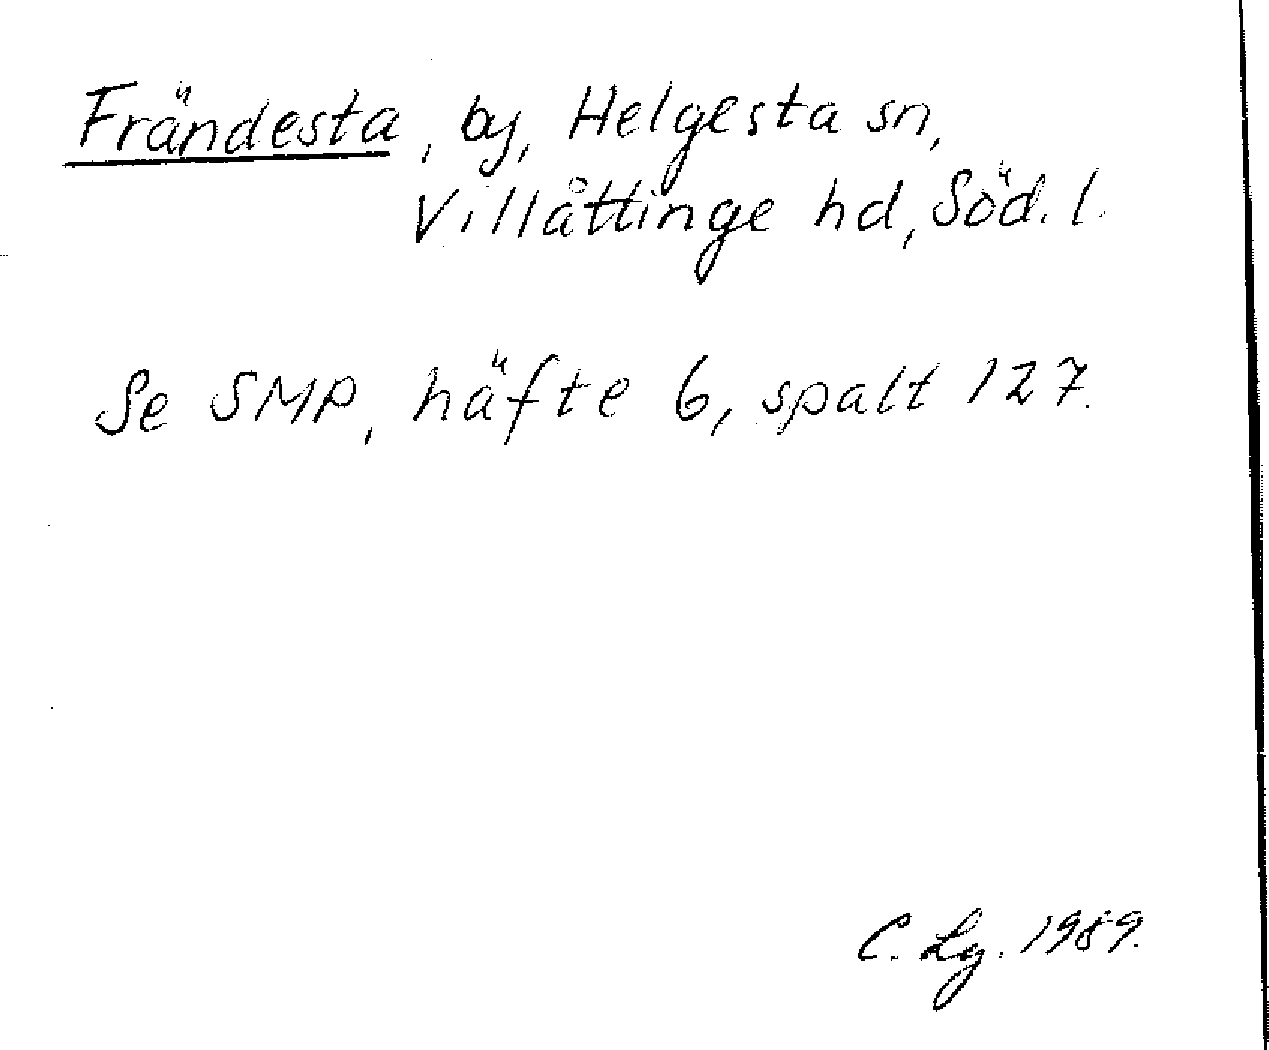 Frändesta, by, Helgesta sn,
Villåttinge hd, Söd. l.
Se SMP, häfte 6, spalt 127.
C. Lg. 1989.